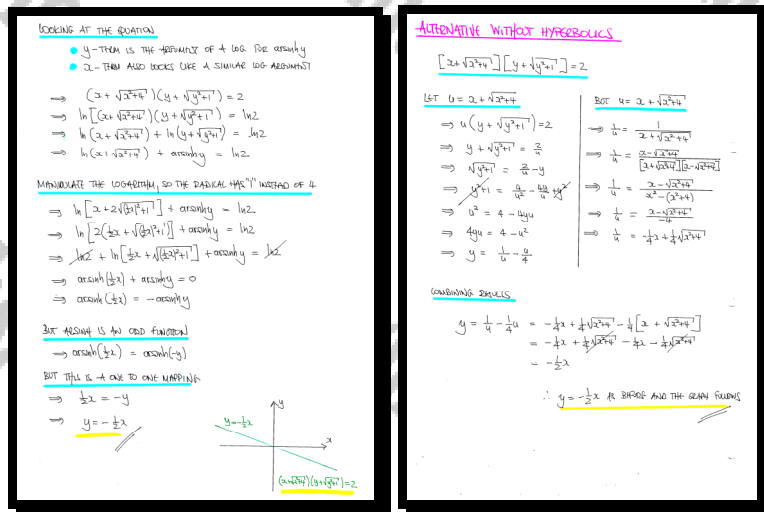 LOOKING AT THE EQUATION
● y-TERM IS THE ARGUMENT OF A LOG FOR arsinhy
● x-TERM ALSO LOOKS LIKE A SIMILAR LOG ARGUMENT
⇒ (x+√(x²+4))(y+√(y²+1)) = 2
⇒ ln[(x+√(x²+4))(y+√(y²+1))] = ln2
⇒ ln(x+√(x²+4)) + ln(y+√(y²+1)) = ln2
⇒ ln(x+√(x²+4)) + arsinhy = ln2
MANIPULATE THE LOGARITHM, SO THE RADICAL HAS "1" INSTEAD OF 4
⇒ ln[x+2√((½x)²+1)] + arsinhy = ln2
⇒ ln[2(½x+√((½x)²+1))] + arsinhy = ln2
⇒ ln2 + ln[½x+√((½x)²+1)] + arsinhy = ln2
⇒ arsinh(½x) + arsinhy = 0
⇒ arsinh(½x) = -arsinhy
BUT ARSINH IS AN ODD FUNCTION
⇒ arsinh(½x) = arsinh(-y)
BUT THIS IS A ONE TO ONE MAPPING
⇒ ½x = -y
⇒ y = -½x
y
y=-½x
x
(x+√(x²+4))(y+√(y²+1))=2
ALTERNATIVE WITHOUT HYPERBOLICS
[x+√(x²+4)][y+√(y²+1)] = 2
LET u = x+√(x²+4)
⇒ u(y+√(y²+1)) = 2
⇒ y+√(y²+1) = 2/u
⇒ √(y²+1) = 2/u - y
⇒ y²+1 = 4/u² - 4y/u + y²
⇒ u² = 4 - 4yu
⇒ 4yu = 4 - u²
⇒ y = 1/u - u/4
BUT u = x+√(x²+4)
⇒ 1/u = 1/(x+√(x²+4))
⇒ 1/u = (x-√(x²+4))/([x+√(x²+4)][x-√(x²+4)])
⇒ 1/u = (x-√(x²+4))/(x²-(x²+4))
⇒ 1/u = (x-√(x²+4))/-4
⇒ 1/u = -¼x+¼√(x²+4)
COMBINING RESULTS
y = 1/u - ¼u = -¼x+¼√(x²+4) - ¼[x+√(x²+4)]
= -¼x+¼√(x²+4) - ¼x - ¼√(x²+4)
= -½x
∴ y = -½x AS BEFORE AND THE GRAPH FOLLOWS